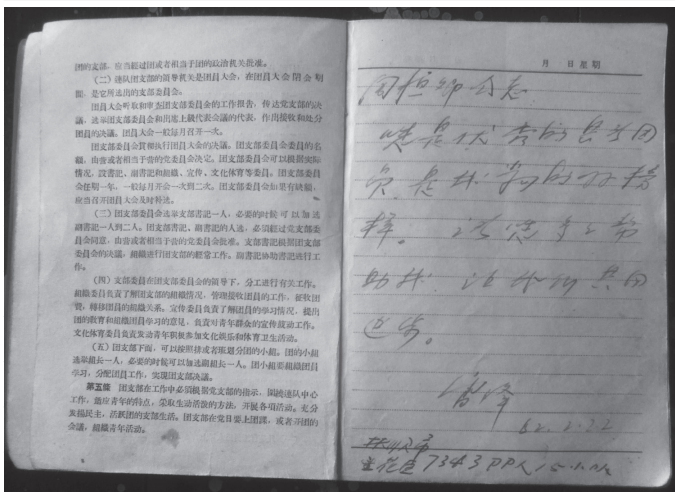 团的支部，应当經过团或者相当于团的政治机关批准。
（二）連队团支部的領导机关是团員大会，在团員大会閉会期
間，是它所选出的支部委員会。
团員大会听取和审查团支部委員会的工作报告，传达党支部的决
議，选举团支部委員会和出席上級代表会議的代表，作出接收和处分
团員的决議。团員大会一般每月召开一次。
团支部委員会貫彻执行团員大会的决議。团支部委員会委員的名
額，由营或者相当于营的党委員会决定。团支部委員会可以根据实际
情况，設書記、副書記和組織、宣传、文化体育等委員。团支部委員
会任期一年，一般每月开会一次到二次。团支部委員会如果有缺額，
应当召开团員大会及时补选。
（三）团支部委員会选举支部書記一人，必要的时候可以加选
副書記一人到二人。团支部書記、副書記的人选，必須經过党支部委
員会同意，由营或者相当于营的党委員会批准。支部書記根据团支部
委員会的决議，組織进行团支部的經常工作。副書記协助書記进行工
作。
（四）支部委員在团支部委員会的領导下，分工进行有关工作。
組織委員負責了解团支部的組織情况，管理接收团員的工作，征收团
費，轉移团員的組織关系。宣传委員負責了解团員的学习情况，提出
团的教育和組織团員学习的意見，負責对青年群众的宣传鼓动工作。
文化体育委員負責发动青年积极参加文化娱乐和体育卫生活动。
（五）团支部下面，可以按照排或者班划分团的小組。团的小組
选举組长一人，必要的时候可以加选副組长一人。团小組要組織团員
学习，分配团員工作，实现团支部决議。
第五条 团支部在工作中必須根据党支部的指示，围繞連队中心
工作，适应青年的特点，采取生动活泼的方法，开展各項活动。充分
发揚民主，活跃团的支部生活。团支部在党日要上团課，或者开团的
会議，組織青年活动。
月 日 星期
同志
您是优秀的共青团
員，是我学习的好榜
样。請您多多帮
助我，让我们共同
进步。
雷峰
62.2.22
7343